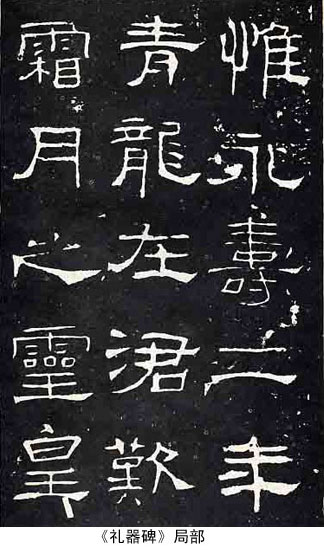 惟永壽二年
青龍在涒歎
霜月之靈皇
《礼器碑》局部